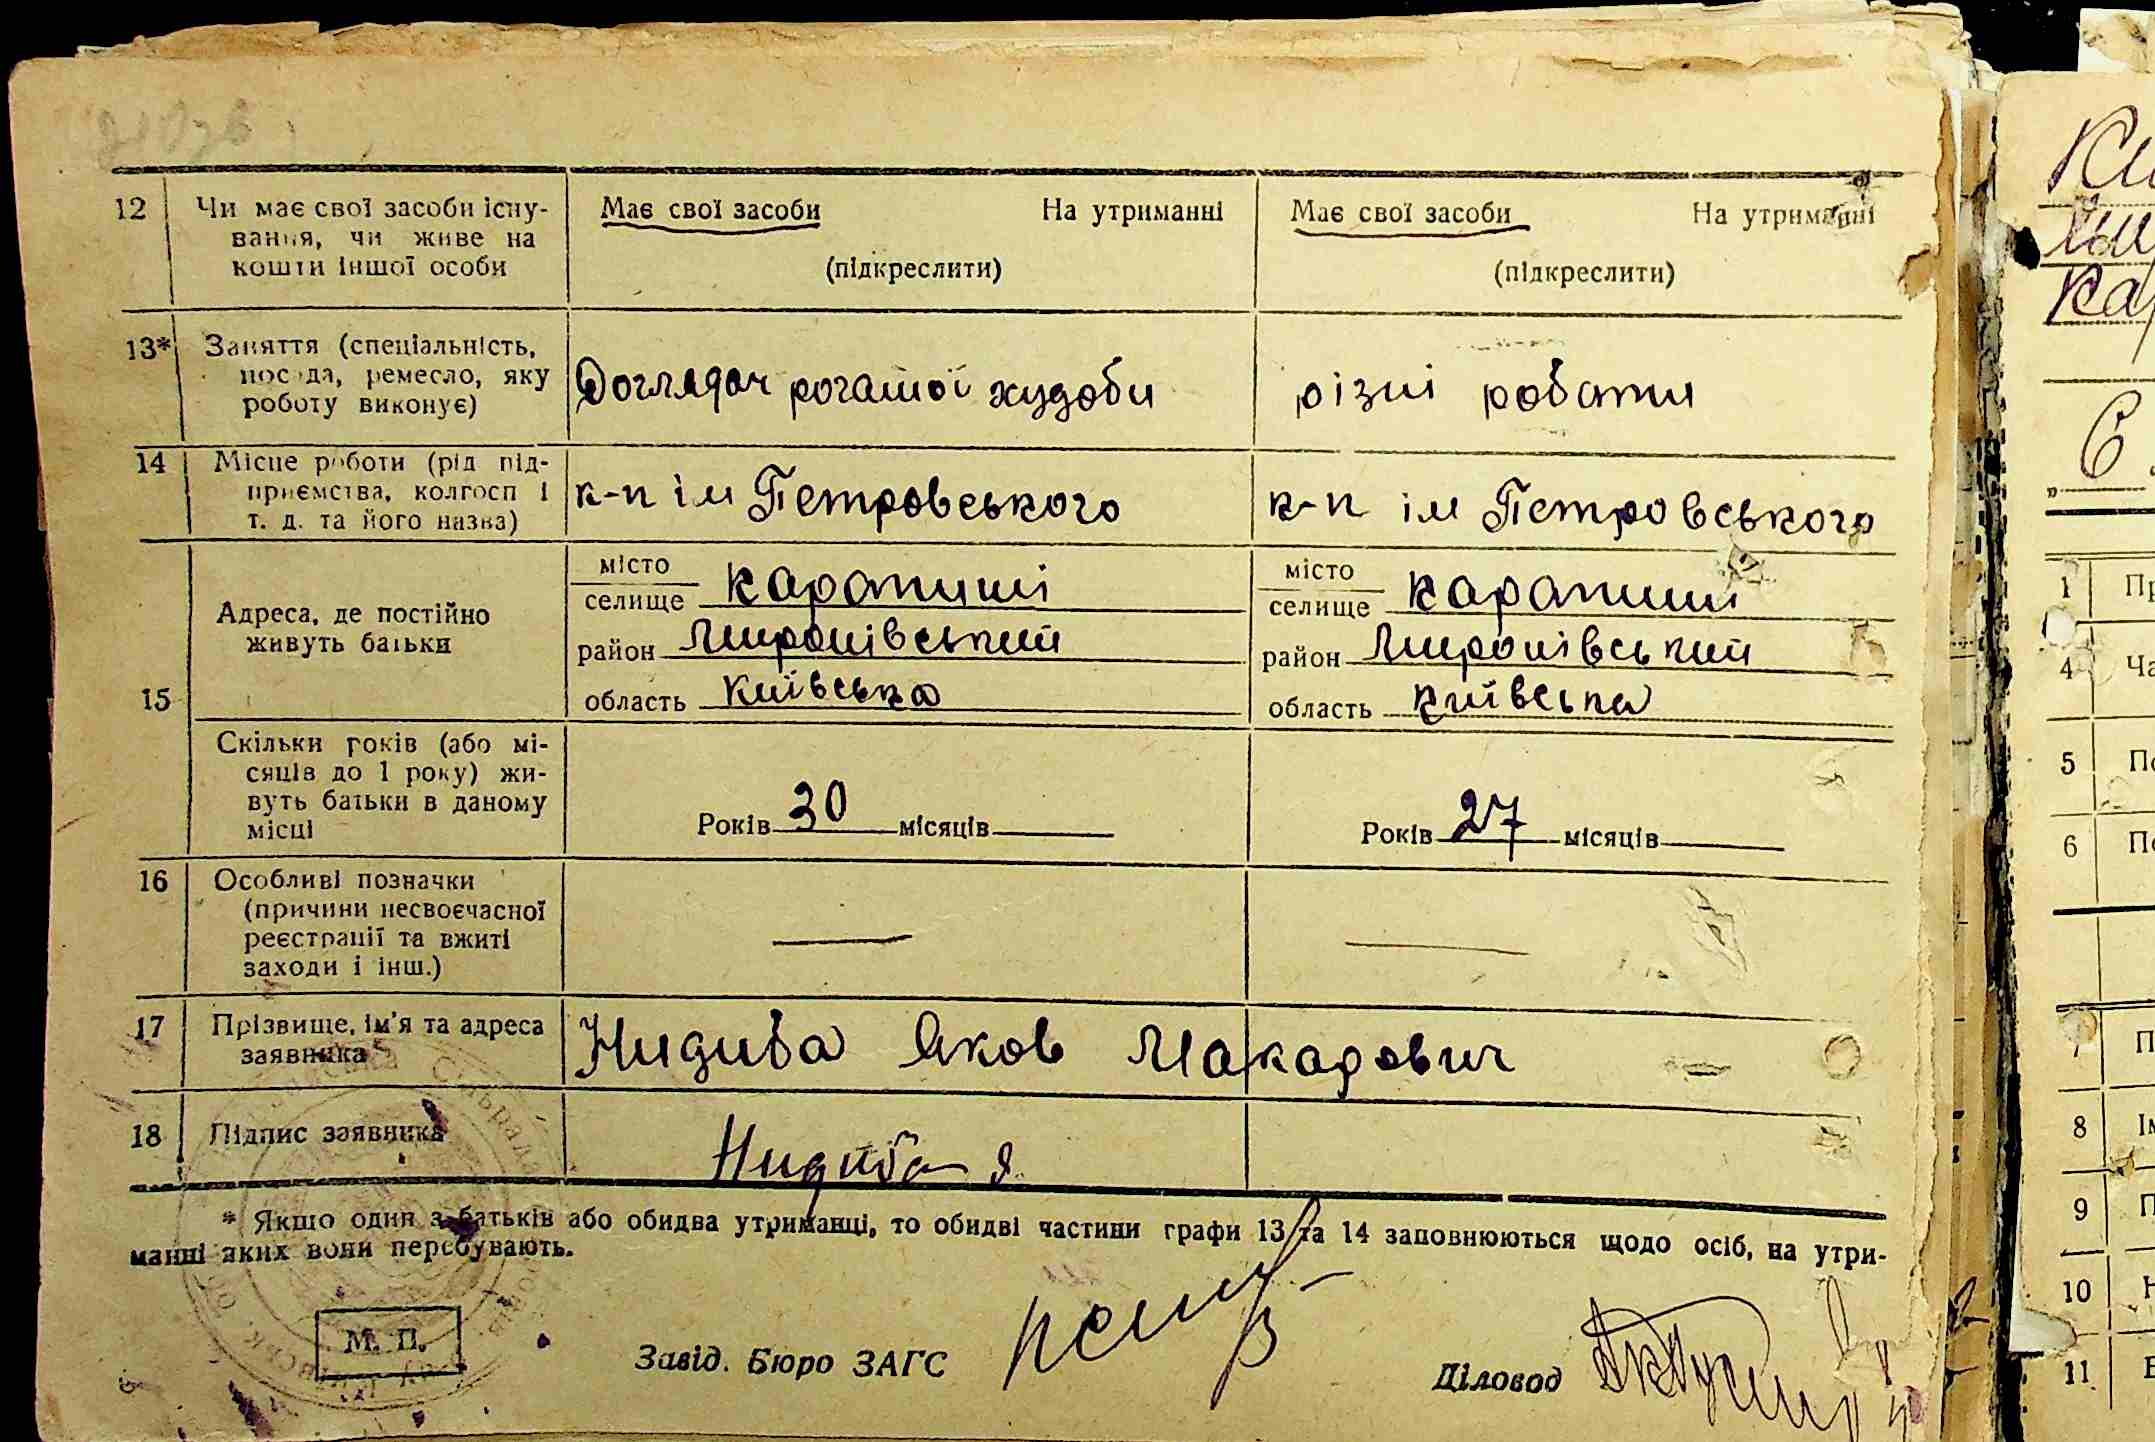 12 Чи має свої засоби існу- Має свої засоби На утриманні Має свої засоби На утриманні
вання, чи живе на
кошти іншої особи (підкреслити) (підкреслити)
13* Заняття (спеціальність,
посада, ремесло, яку Доглядач рогатої худоби різні роботи
роботу виконує)
14 Місце роботи (рід під-
приємства, колгосп і к-п ім Петровського к-п ім Петровського
т. д. та його назва)
місто місто
селище Карапиші селище Карапиші
Адреса, де постійно
живуть батьки район Миронівський район Миронівський
15 область Київська область Київська
Скільки років (або мі-
сяців до 1 року) жи-
вуть батьки в даному
місці Років 30 місяців Років 27 місяців
16 Особливі позначки
(причини несвоєчасної
реєстрації та вжиті
заходи і інш.)
17 Прізвище, ім'я та адреса
заявника Нидиба Яков Макарович
18 Підпис заявника Нидиба Я
* Якщо один з батьків або обидва утриманці, то обидві частини графи 13 та 14 заповнюються щодо осіб, на утри-
манні яких вони перебувають.
М. П. Завід. Бюро ЗАГС Діловод
1
4
5
6
8
9
10
11